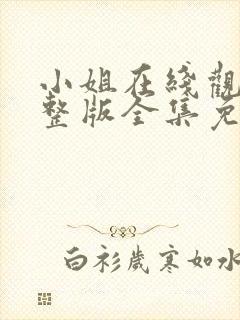 小姐在綫觀
整版全集免
白衫歲寒如水